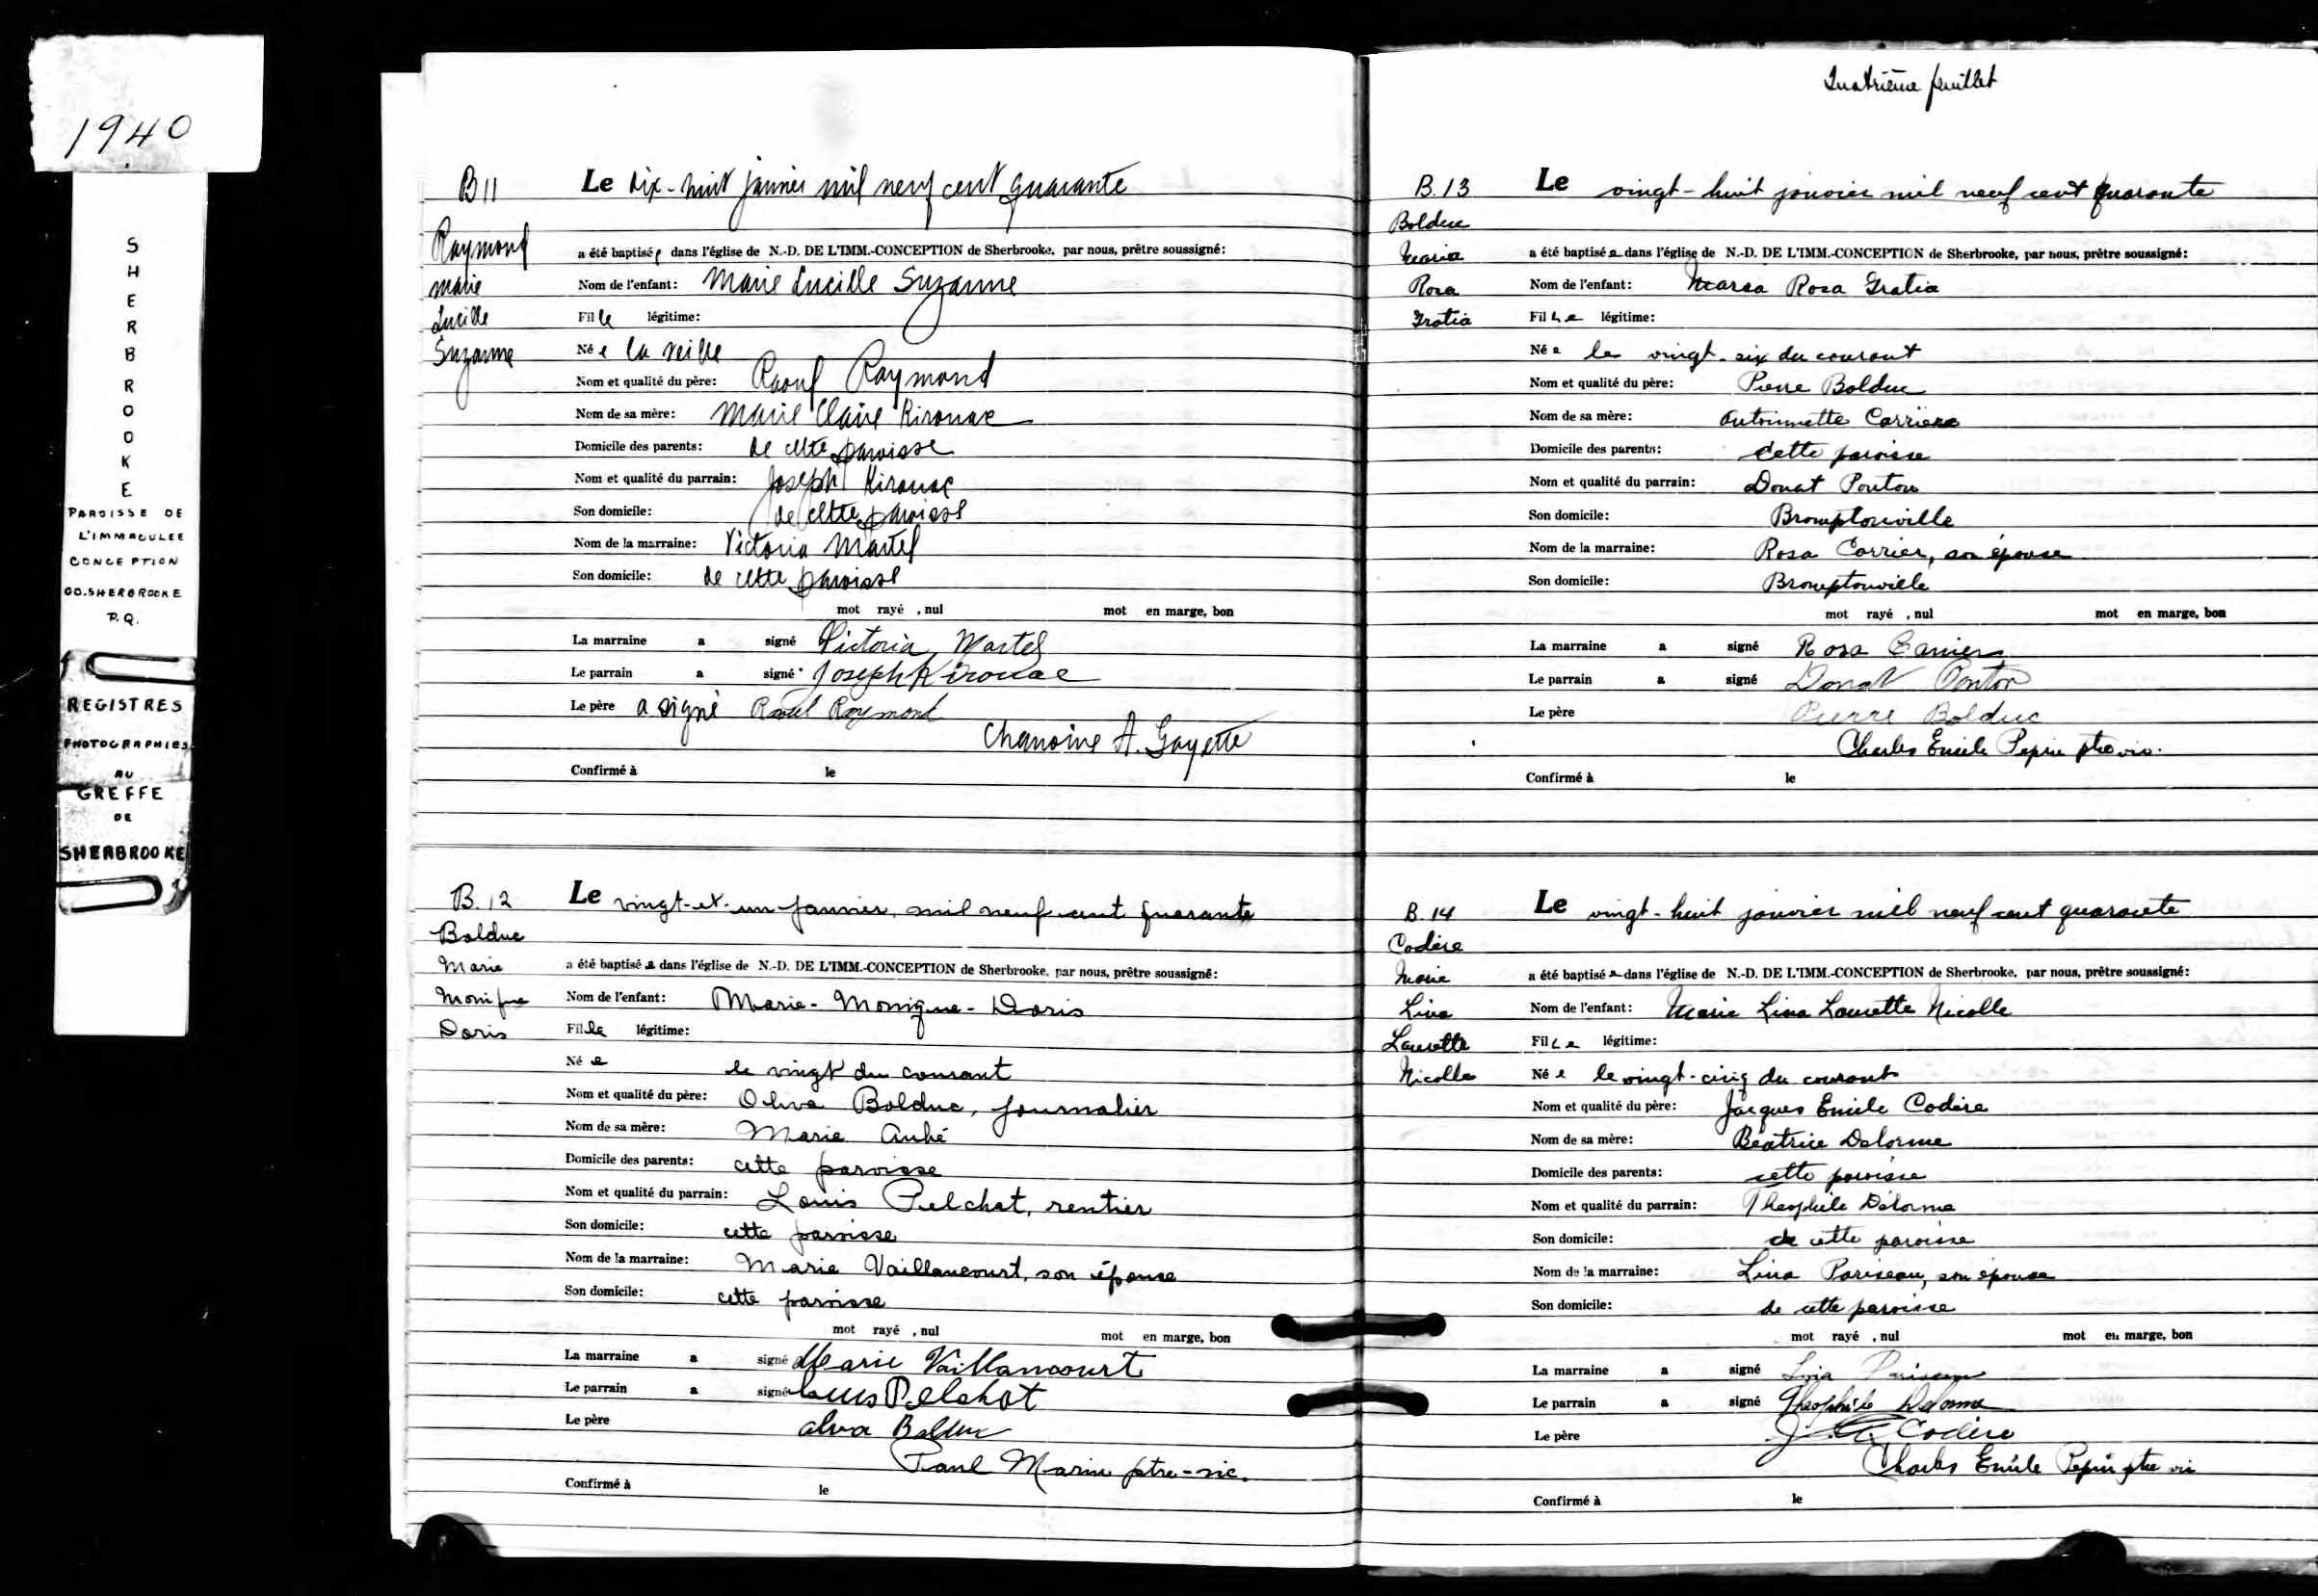 1940
SHERBROOKE
PAROISSE DE
L'IMMACULEE
CONCEPTION
CO. SHERBROOKE
P.Q.
REGISTRES
PHOTOGRAPHIES
AU
GREFFE
DE
SHERBROOKE
B 11
Raymond
Marie
Lucille
Suzanne
Le dix-huit janvier mil neuf cent quarante
a été baptisée dans l'église de N.-D. DE L'IMM.-CONCEPTION de Sherbrooke, par nous, prêtre soussigné:
Nom de l'enfant: Marie Lucille Suzanne
Fille légitime:
Née la veille
Nom et qualité du père: Raoul Raymond
Nom de sa mère: Marie Claire Kirouac
Domicile des parents: de cette paroisse
Nom et qualité du parrain: Joseph Kirouac
Son domicile: de cette paroisse
Nom de la marraine: Victoria Martel
Son domicile: de cette paroisse
mot rayé , nul mot en marge, bon
La marraine a signé Victoria Martel
Le parrain a signé Joseph Kirouac
Le père a signé Raoul Raymond
Chanoine A. Goyette
Confirmé à le
B. 12
Bolduc
Marie
Monique
Doris
Le vingt-et-un janvier, mil neuf cent quarante
a été baptisée dans l'église de N.-D. DE L'IMM.-CONCEPTION de Sherbrooke, par nous, prêtre soussigné:
Nom de l'enfant: Marie-Monique-Doris
Fille légitime:
Née le vingt du courant
Nom et qualité du père: Oliva Bolduc, journalier
Nom de sa mère: Marie Aubé
Domicile des parents: cette paroisse
Nom et qualité du parrain: Louis Pelchat, rentier
Son domicile: cette paroisse
Nom de la marraine: Marie Vaillancourt, son épouse
Son domicile: cette paroisse
mot rayé , nul mot en marge, bon
La marraine a signé Marie Vaillancourt
Le parrain a signé Louis Pelchat
Le père Bolduc
Paul Marin ptre-vic.
Confirmé à le
Quatrième feuillet
B. 13
Bolduc
Maria
Rosa
Gratia
Le vingt-huit janvier mil neuf cent quarante
a été baptisée dans l'église de N.-D. DE L'IMM.-CONCEPTION de Sherbrooke, par nous, prêtre soussigné:
Nom de l'enfant: Maria Rosa Gratia
Fille légitime:
Née le vingt-six du courant
Nom et qualité du père: Pierre Bolduc
Nom de sa mère: Antoinette Carrière
Domicile des parents: cette paroisse
Nom et qualité du parrain: Donat Ponton
Son domicile: Bromptonville
Nom de la marraine: Rosa Carrier, son épouse
Son domicile: Bromptonville
mot rayé , nul mot en marge, bon
La marraine a signé Rosa Carrier
Le parrain a signé Donat Ponton
Le père Pierre Bolduc
Charles Emile Pepin ptre vic.
Confirmé à le
B. 14
Codère
Marie
Lina
Laurette
Nicolle
Le vingt-huit janvier mil neuf cent quarante
a été baptisée dans l'église de N.-D. DE L'IMM.-CONCEPTION de Sherbrooke, par nous, prêtre soussigné:
Nom de l'enfant: Marie Lina Laurette Nicolle
Fille légitime:
Née le vingt-cinq du courant
Nom et qualité du père: Jacques Emile Codère
Nom de sa mère: Béatrice Delorme
Domicile des parents: cette paroisse
Nom et qualité du parrain: Théophile Délorme
Son domicile: de cette paroisse
Nom de la marraine: Lina Pariseau, son épouse
Son domicile: de cette paroisse
mot rayé , nul mot en marge, bon
La marraine a signé Lina Pariseau
Le parrain a signé Théophile Delorme
Le père J. E. Codère
Charles Emile Pepin ptre vic
Confirmé à le